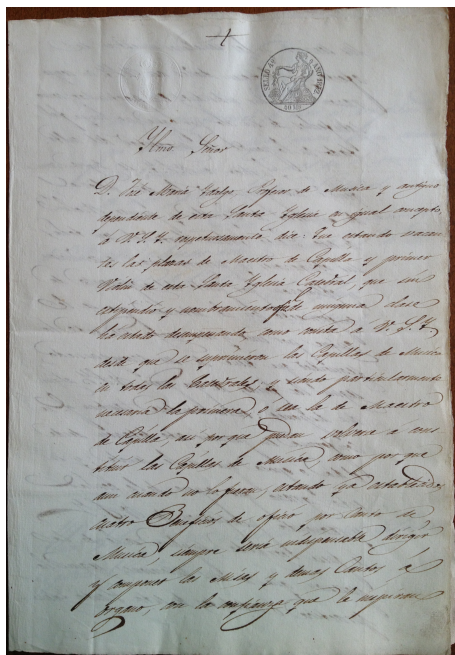 Ylmo Señor
D. José Maria Hidalgo, Profesor de Musica y antiguo
dependiente de esta Santa Yglesia en igual concepto
á V. S. Y. respetuosamente dice: Que estando vacan-
tes las plazas de Maestro de Capilla y primer
de esta Santa Yglesia Catedral, que sin
estipendio y nombramiento de ninguna clase
ha estado desempeñando como consta a V. S. Y.
desde que se suprimieron las Capillas de Musica
en todas las Catedrales, y siendo particularmente
necesaria la primera, ó sea la de Maestro
de Capilla, asi por que puedan volverse a cons-
tituir las Capillas de Musica, como por que
aun cuando no lo fuesen, estando ya establecidos
cuatro Beneficios de oficio, por Canto de
Musica, siempre seria indispensable dirigir
y componer las Misas y demas Cantos á
organo, con lo que